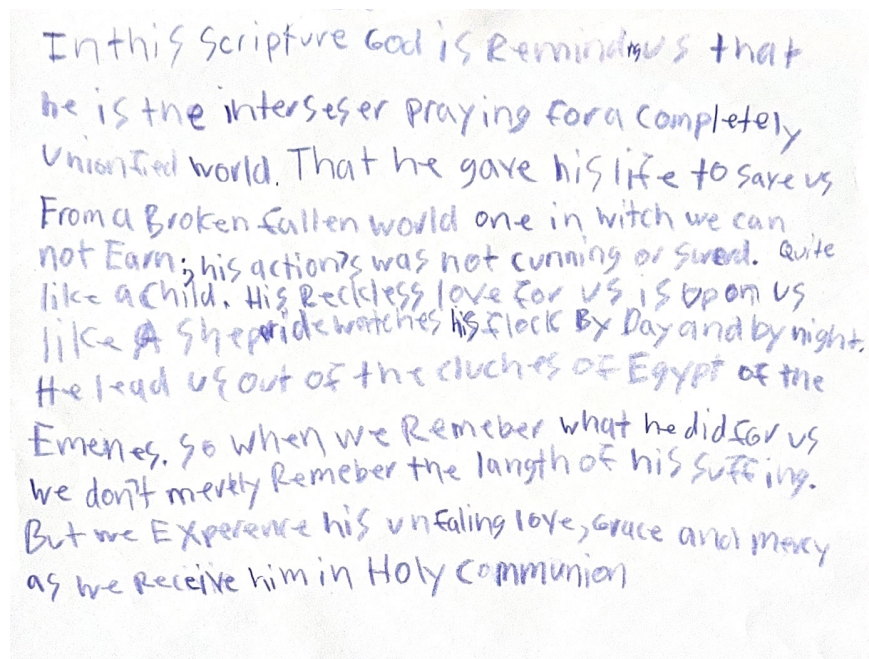 In this Scripture God is Reminding us that
he is the interseser praying for a completely
Unionfied world. That he gave his life to save us
From a Broken fallen world one in witch we can
not Earn; his action's was not cunning or sword. Quite
like a child. His Reckless love for us is upon us
like A Shepride watches his flock By Day and by night.
He lead us out of the cluches of Egypt of the
Emenes. So when we Remeber what he did for us
we don't merely Remeber the langth of his suffing.
But we Experence his unfaling love, Grace and mercy
as we Receive him in Holy Communion